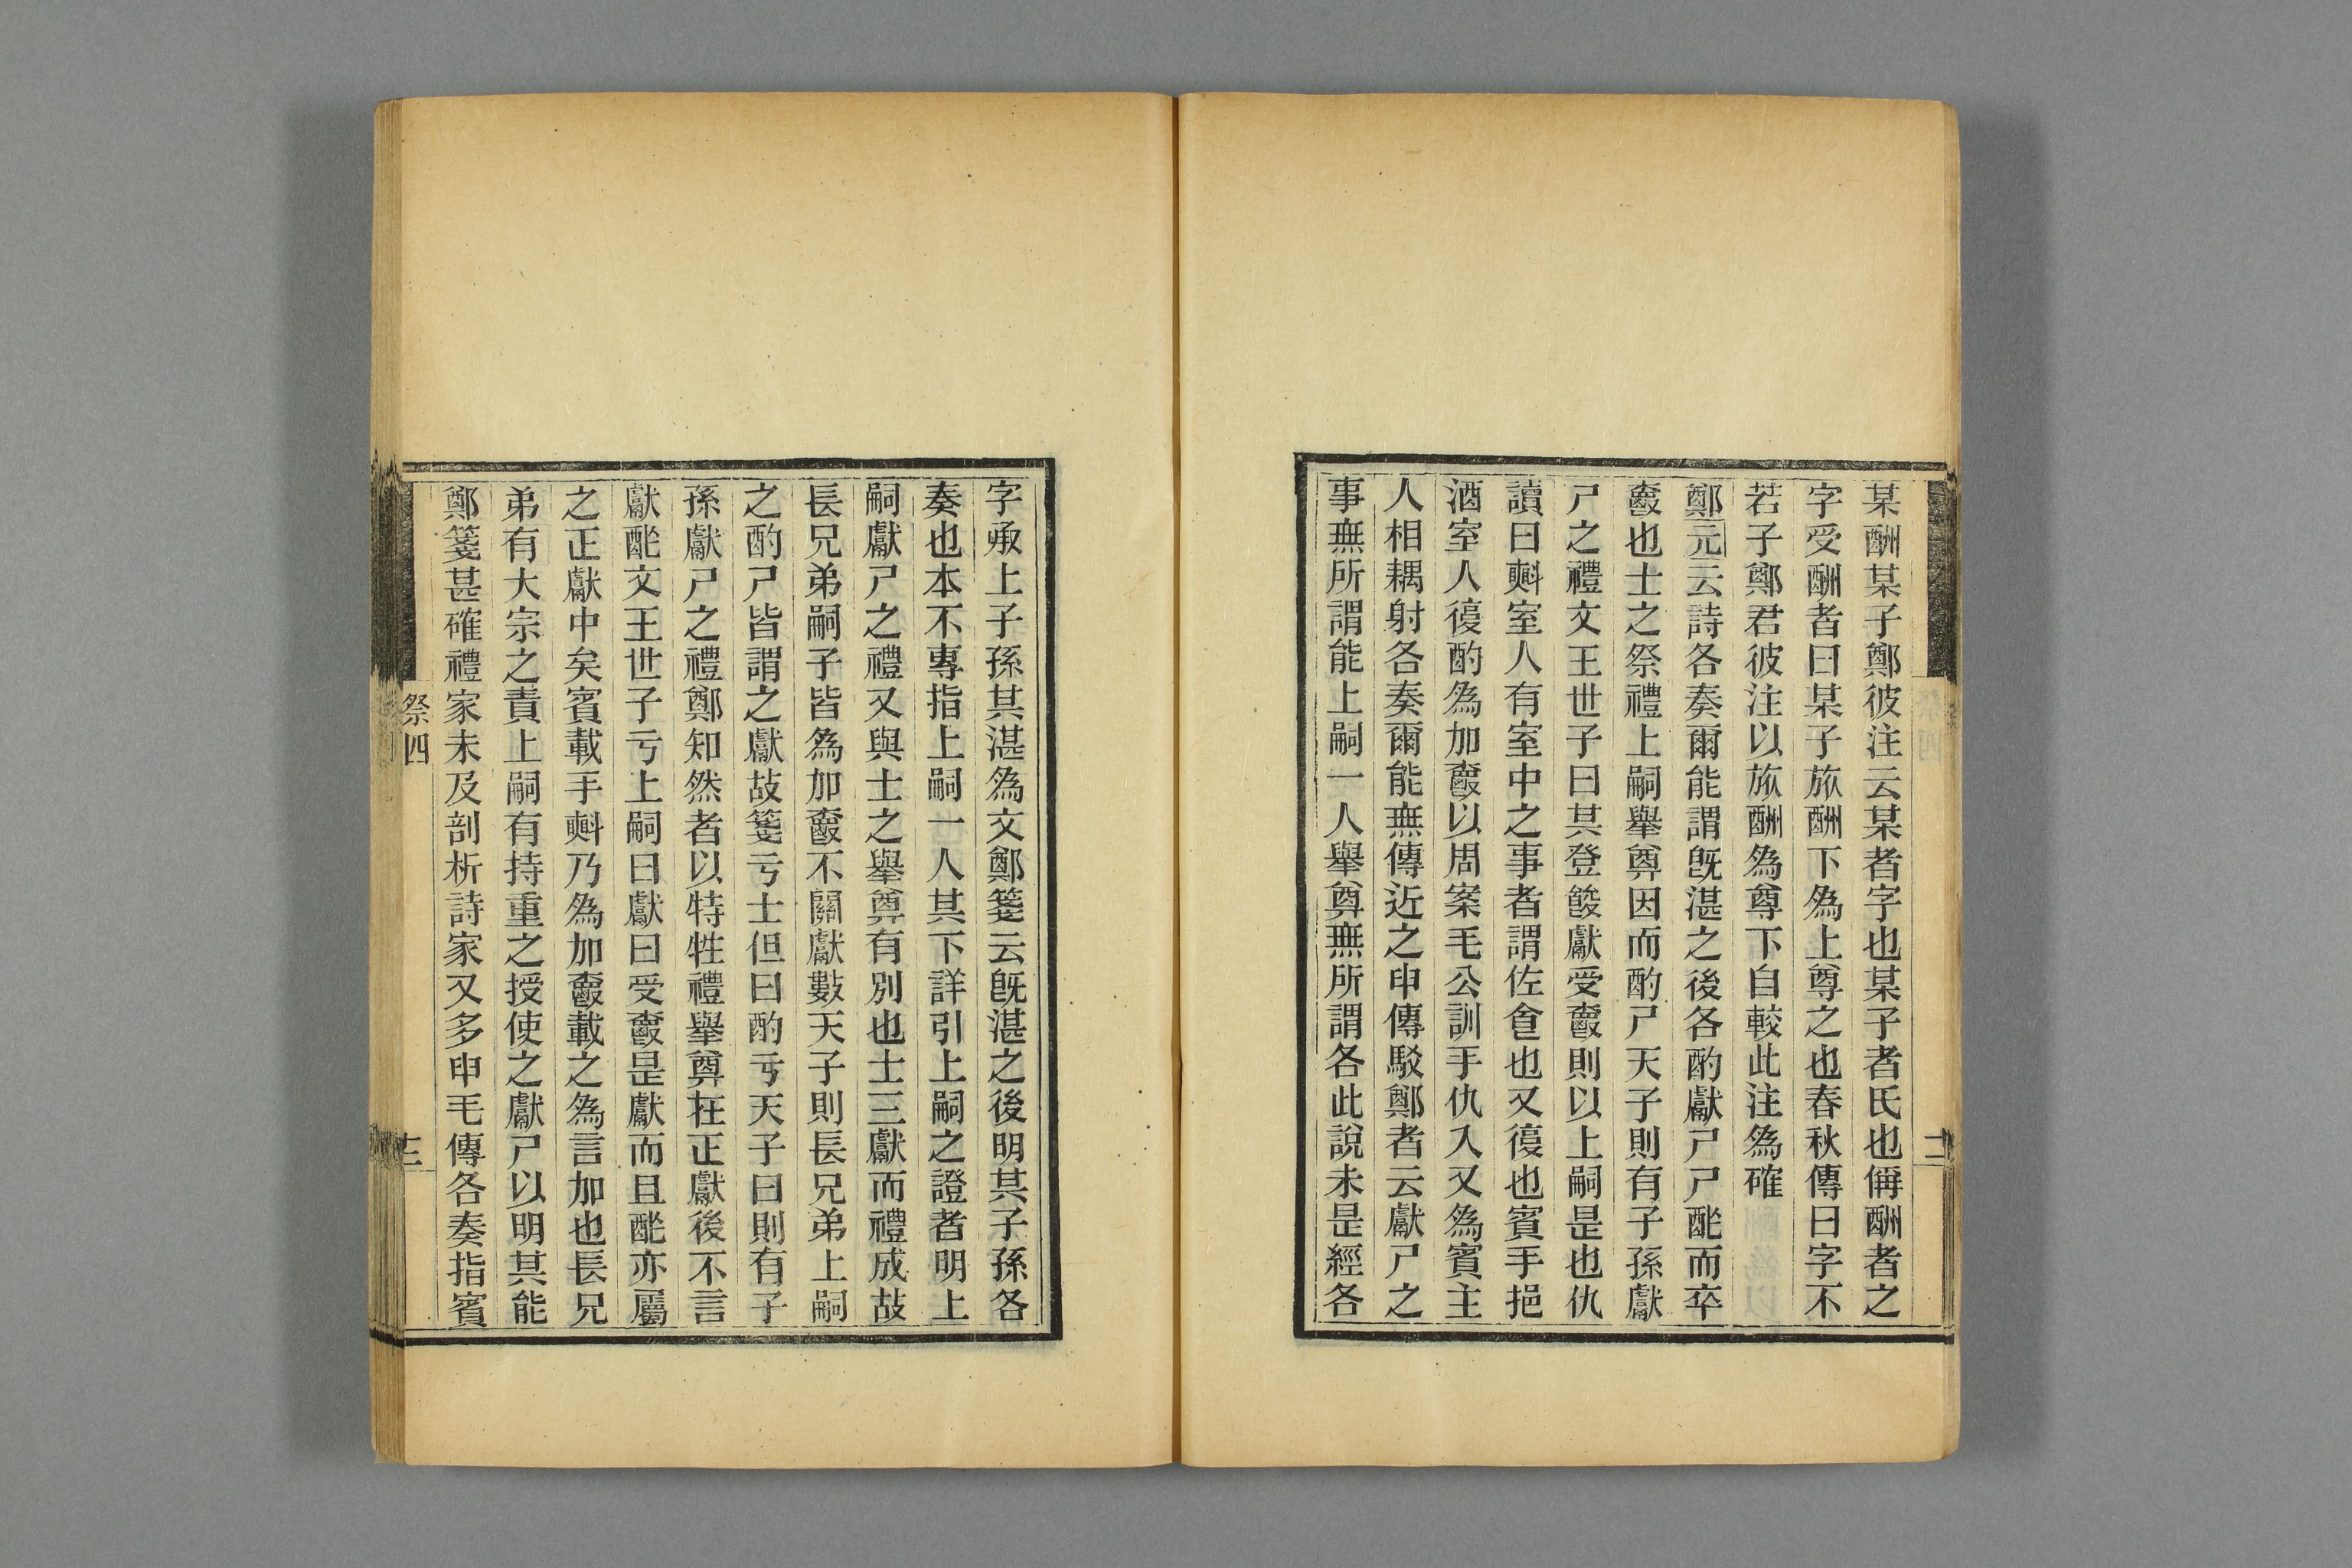 某酬某子鄭彼注云某者字也某子者氏也偁酬者之
字受酬者曰某子旅酬下為上尊之也春秋傳曰字不
若子鄭君彼注以旅酬為尊下自較此注為確
鄭元云詩各奏爾能謂旣湛之後各酌獻尸尸酢而卒
爵也士之祭禮上嗣舉奠因而酌尸天子則有子孫獻
尸之禮文王世子曰其登餕獻受爵則以上嗣是也仇
讀曰㪺室人有室中之事者謂佐食也又復也賓手挹
酒室人復酌為加爵以周案毛公訓手仇入又為賓主
人相耦射各奏爾能無傳近之申傳駁鄭者云獻尸之
事無所謂能上嗣一人舉奠無所謂各此說未是經各
字承上子孫其湛為文鄭箋云旣湛之後明其子孫各
奏也本不專指上嗣一人其下詳引上嗣之證者明上
嗣獻尸之禮又與士之舉奠有別也士三獻而禮成故
長兄弟嗣子皆為加爵不關獻數天子則長兄弟上嗣
之酌尸皆謂之獻故箋亏士但曰酌亏天子曰則有子
孫獻尸之禮鄭知然者以特牲禮舉奠在正獻後不言
獻酢文王世子亏上嗣曰獻曰受爵是獻而且酢亦屬
之正獻中矣賓載手㪺乃為加爵載之為言加也長兄
弟有大宗之責上嗣有持重之授使之獻尸以明其能
鄭箋甚確禮家未及剖析詩家又多申毛傳各奏指賓
祭四
十三